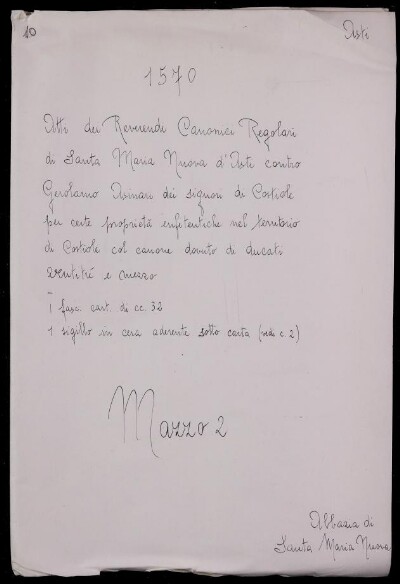 10
Asti
1570
Atti dei Reverendi Canonici Regolari
di Santa Maria Nuova d'Asti contro
Gerolamo Asinari dei signori di Costiole
per certe proprietà enfiteutiche nel territorio
di Costiole col canone dovuto di ducati
ventitré e mezzo
–
1 fasc. cart. di cc. 32
1 sigillo in cera aderente sotto carta (vedi c. 2)
Mazzo 2
Abbazia di
Santa Maria Nuova